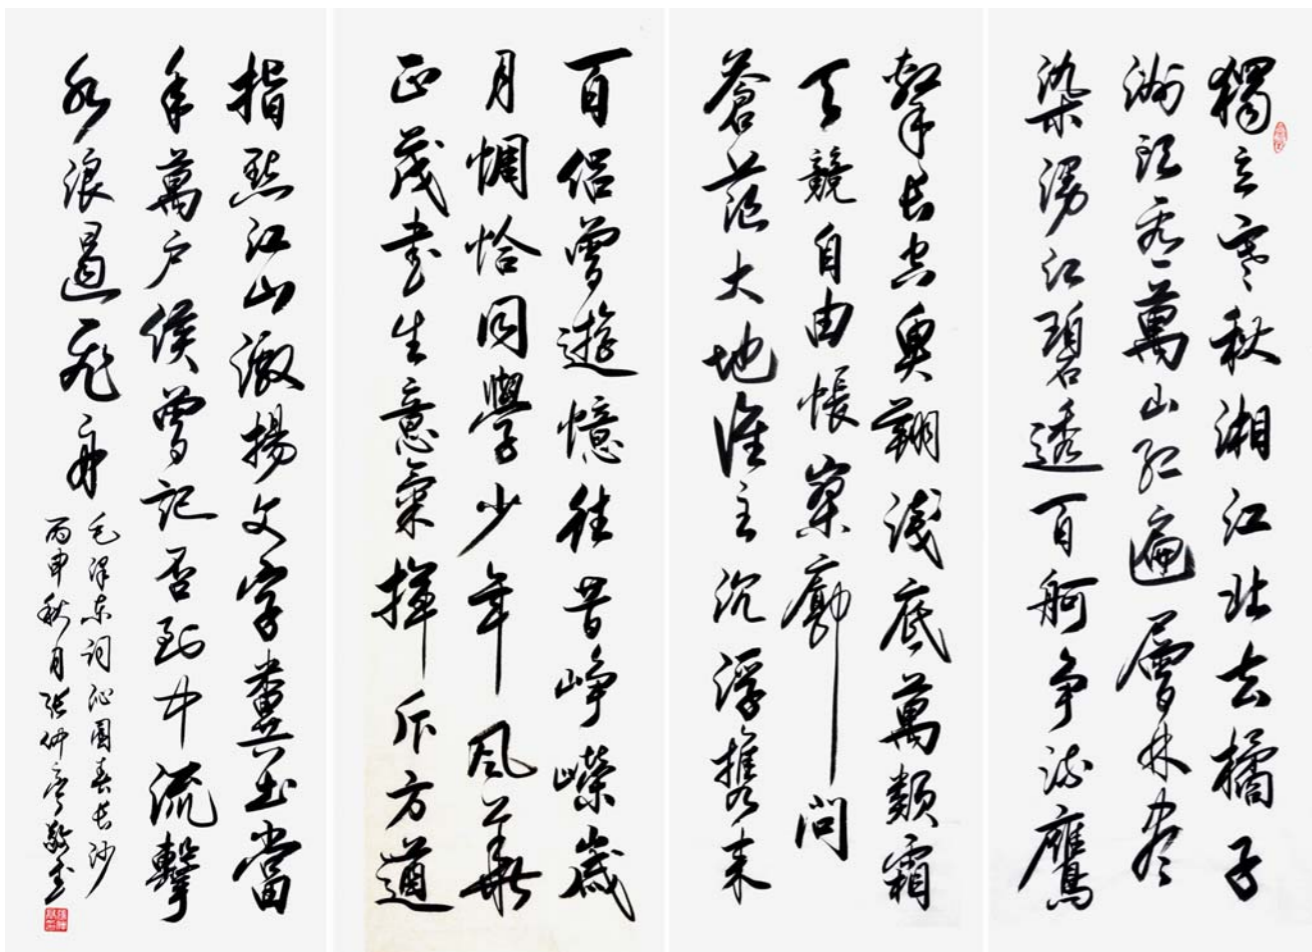 獨立寒秋湘江北去橘子
洲頭看萬山紅遍層林盡
染漫江碧透百舸争流鷹
擊長空魚翔淺底萬類霜
天競自由悵寥廓問
蒼茫大地誰主沉浮攜來
百侣曾遊憶往昔崢嶸歲
月惆恰同學少年風華
正茂書生意氣揮斥方遒
指點江山激揚文字糞土當
年萬户侯曾記否到中流擊
水浪遏飛舟
毛澤东詞沁園春長沙
丙申秋月張仲亭敬書